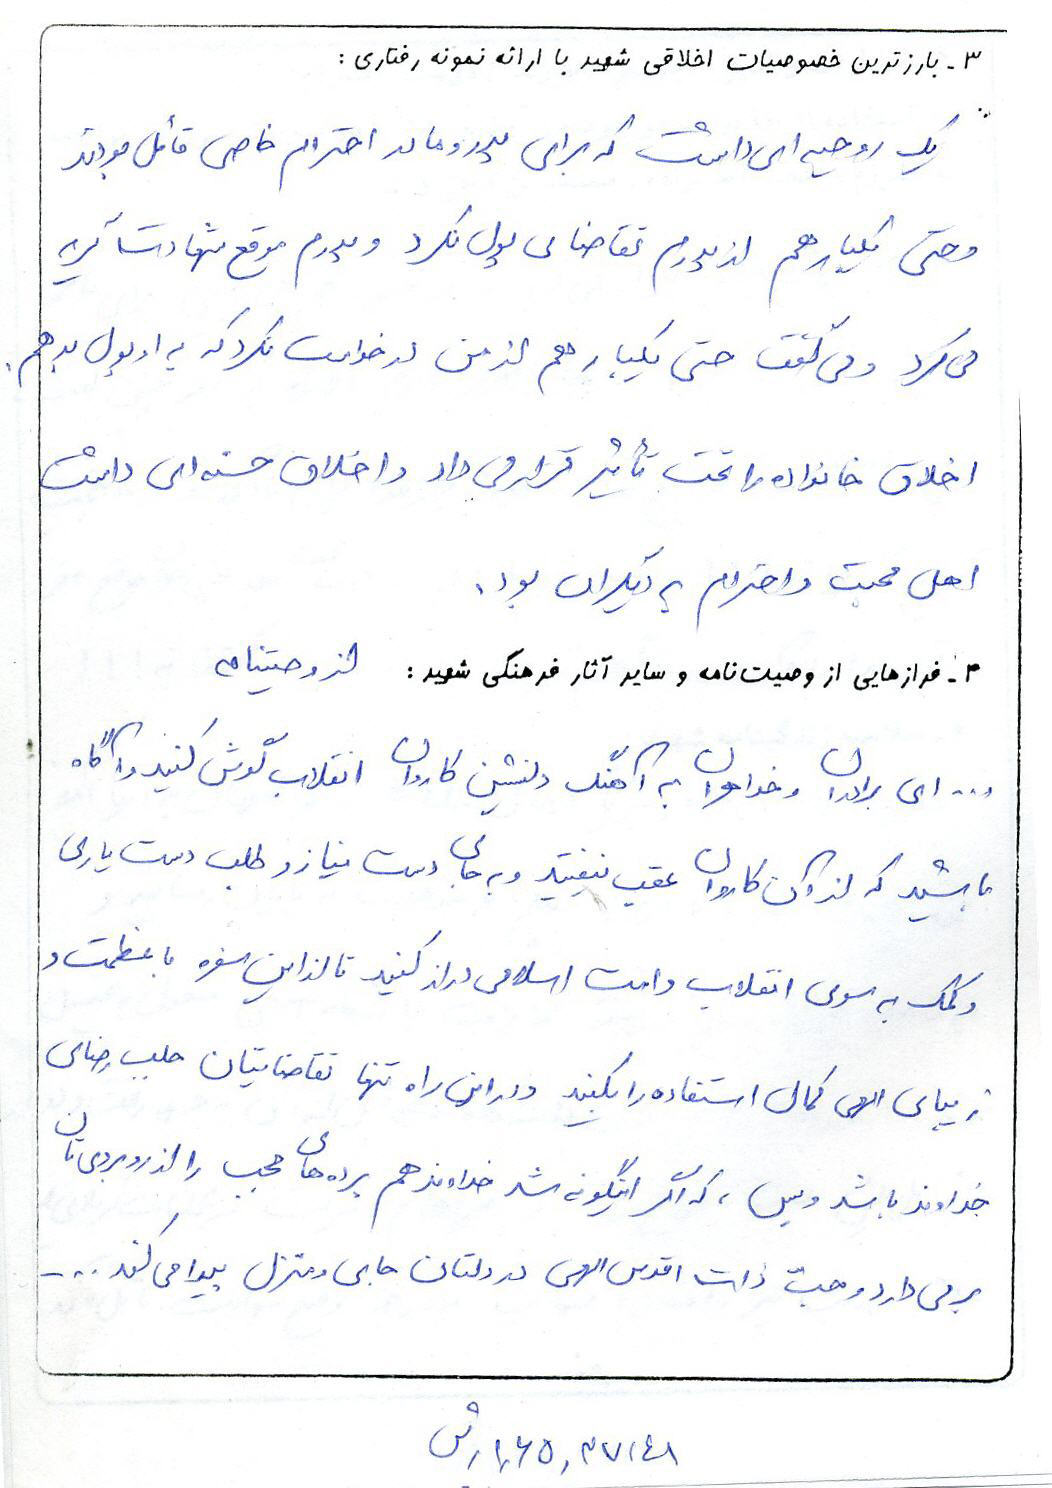 ۳ـ بارزترین خصوصیات اخلاقی شهید با ارائه نمونه رفتاری :
یک روحیه ای داشت که برای پدر و مادر احترام خاصی قائل بودند
و حتی یکبار هم از پدرم تقاضای پول نکرد و پدرم موقع شهادت گریه
می کرد و می گفت حتی یکبار هم از من درخواست نکرد که به او پول بدهم.
اخلاق خانواده را تحت تأثیر قرار می داد و اخلاق حسنه ای داشت
اهل محبت و احترام به دیگران بود.
۴ـ فرازهایی از وصیت‌نامه و سایر آثار فرهنگی شهید : از وصیتنامه
... ای برادران و خواهران به آهنگ دلنشین کاروان انقلاب گوش کنید و آگاه
باشید که از این کاروان عقب نیفتید و به جای دست نیاز و طلب دست یاری
و کمک به سوی انقلاب و امت اسلامی دراز کنید تا از این سفره با عظمت و
زیبای الهی کمال استفاده را بکنید و در این راه تنها تقاضایتان جلب رضای
خداوند باشد و بس ، که اگر اینگونه شد خداوند هم پرده های حجب را از روبروی تان
برمی دارد و حب ذات اقدس الهی در دلتان جای و منزل پیدا می کند ...